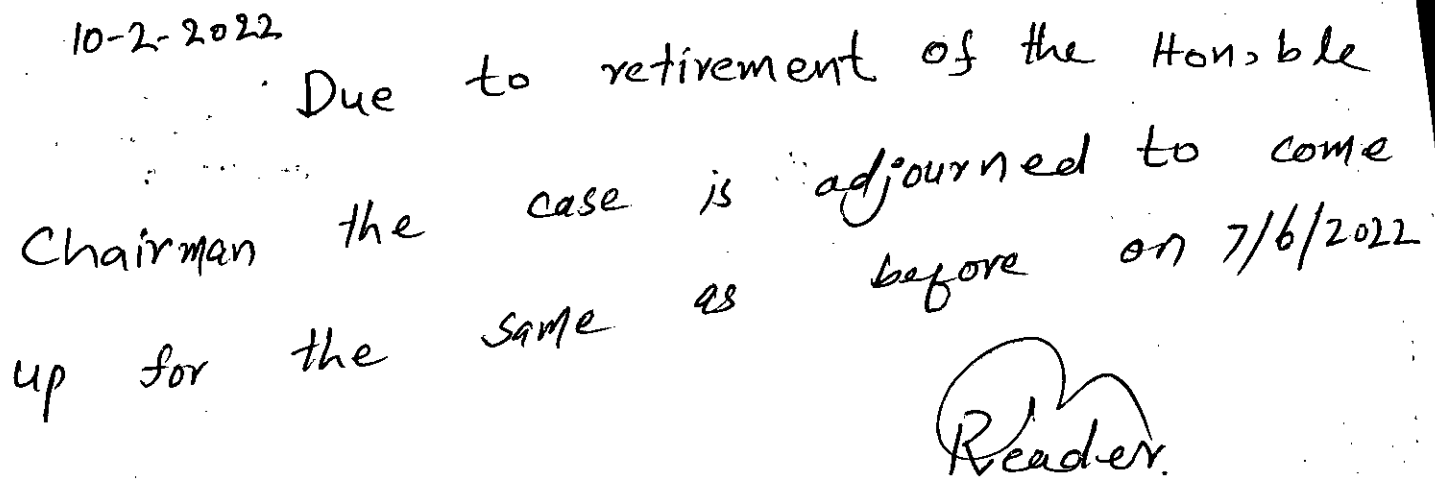 10-2-2022
Due to retirement of the Hon,ble
Chairman the case is adjourned to come
up for the same as before on 7/6/2022
Reader.